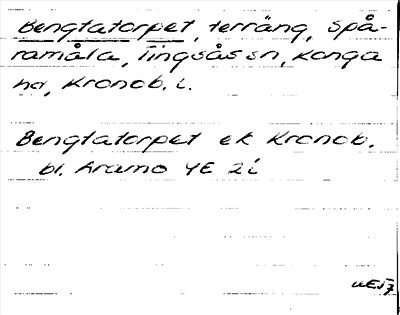 Bengtatorpet, terräng, Spå-
ramåla, Tingsås sn, Konga
hd, Kronob. l.
Bengtatorpet ek Kronob.
bl. Aramo 4E 2i